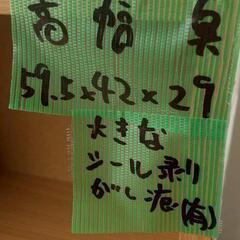 高 幅 奥
59.5×42×29
大きな
シール剥り
がし痕(有)